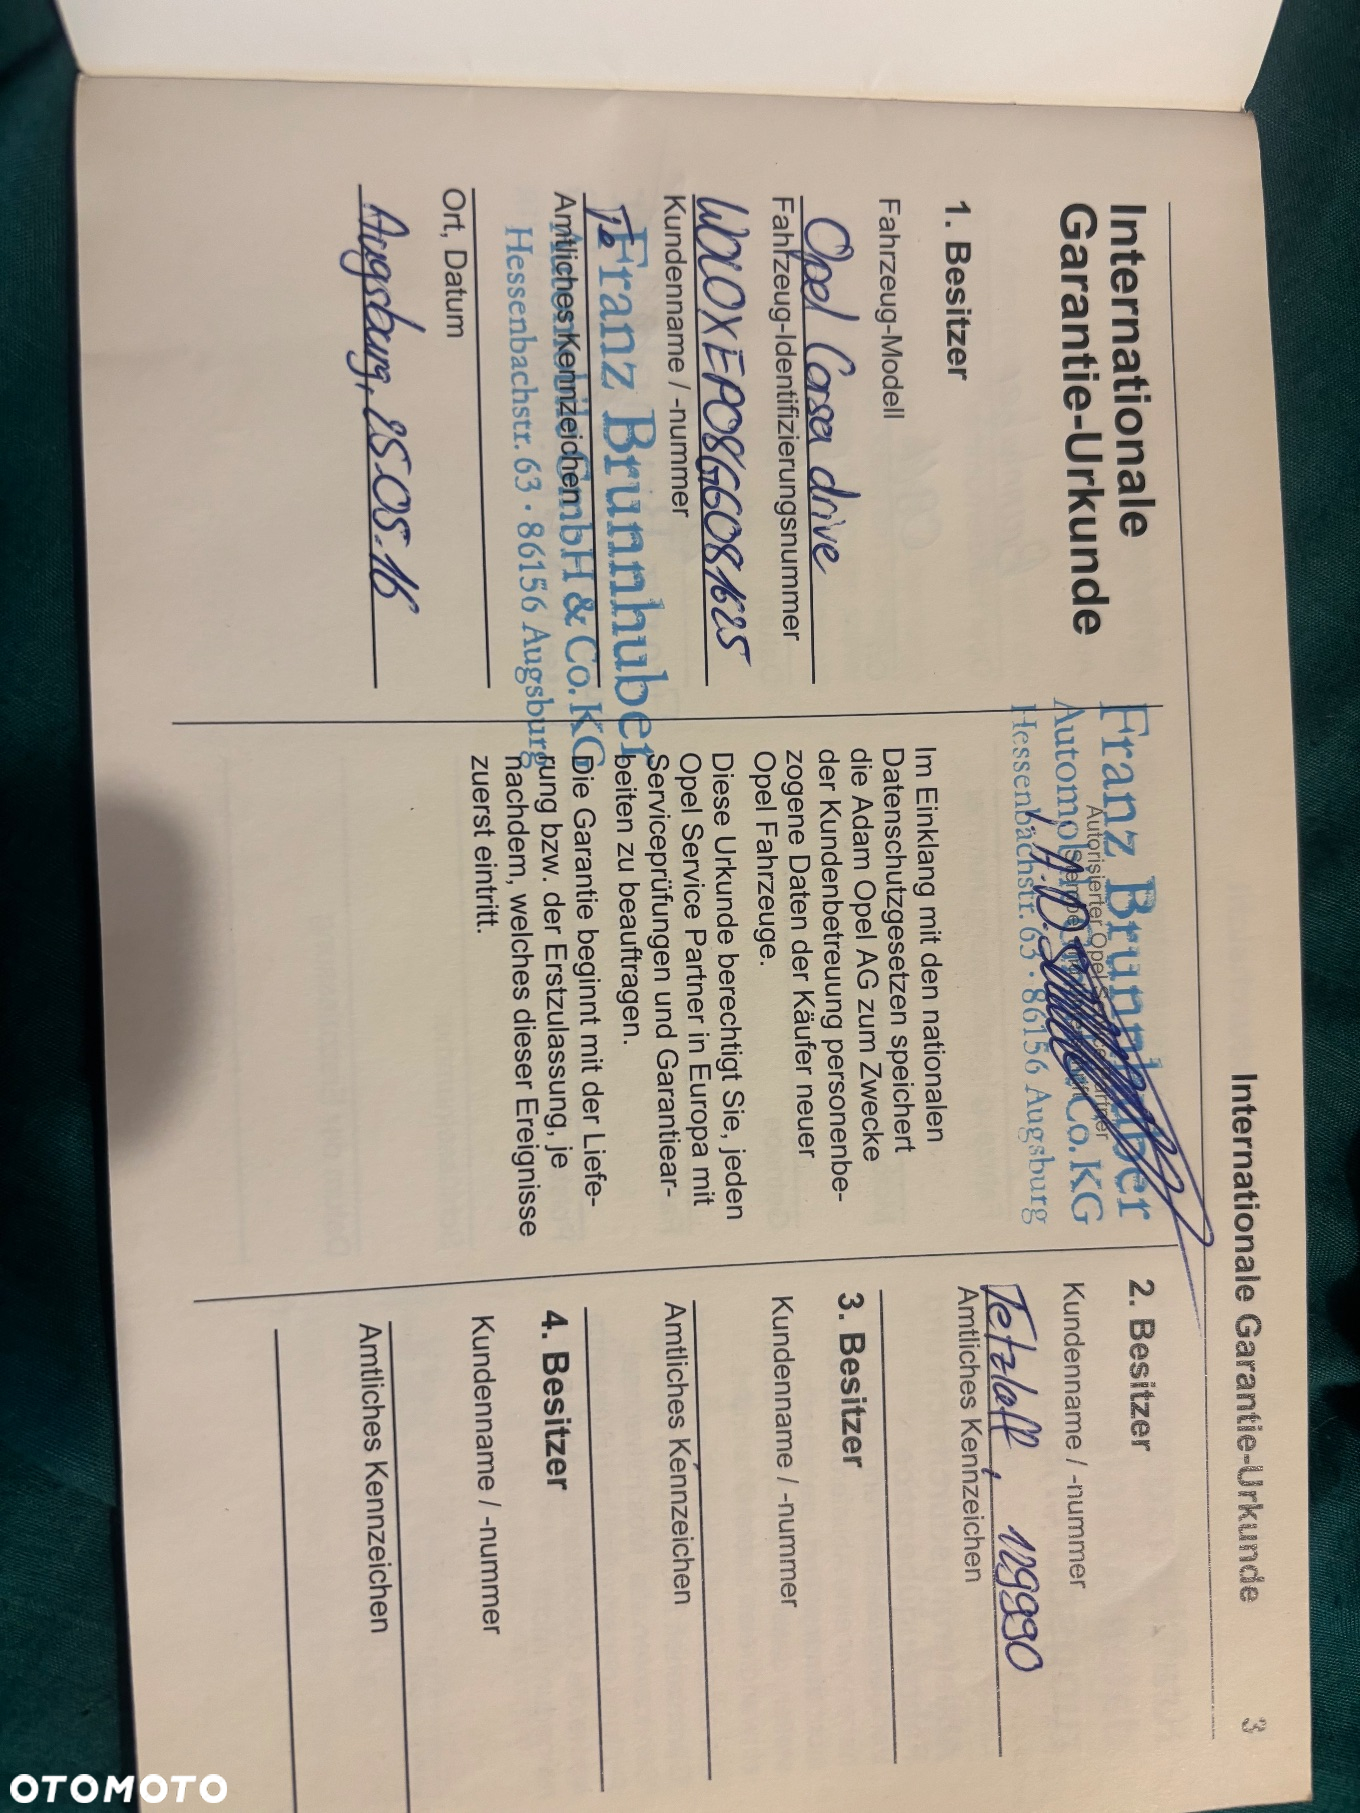 Internationale Garantie-Urkunde 3
Internationale
Garantie-Urkunde
1. Besitzer
Fahrzeug-Modell
Opel Corsa drive
Fahrzeug-Identifizierungsnummer
W0L0XEP08G6081625
Kundenname / -nummer
Franz Brunnhuber
Automobile GmbH & Co. KG
Amtliches Kennzeichen
Hessenbachstr. 63 · 86156 Augsburg
Ort, Datum
Augsburg, 25.05.16
Franz Brunnhuber
Autorisierter Opel Service Partner
Automobile GmbH & Co. KG
Hessenbachstr. 63 · 86156 Augsburg
Im Einklang mit den nationalen
Datenschutzgesetzen speichert
die Adam Opel AG zum Zwecke
der Kundenbetreuung personenbe-
zogene Daten der Käufer neuer
Opel Fahrzeuge.
Diese Urkunde berechtigt Sie, jeden
Opel Service Partner in Europa mit
Serviceprüfungen und Garantiear-
beiten zu beauftragen.
Die Garantie beginnt mit der Liefe-
rung bzw. der Erstzulassung, je
nachdem, welches dieser Ereignisse
zuerst eintritt.
2. Besitzer
Kundenname / -nummer
Tetzlaff, 12990
Amtliches Kennzeichen
3. Besitzer
Kundenname / -nummer
Amtliches Kennzeichen
4. Besitzer
Kundenname / -nummer
Amtliches Kennzeichen
OTOMOTO